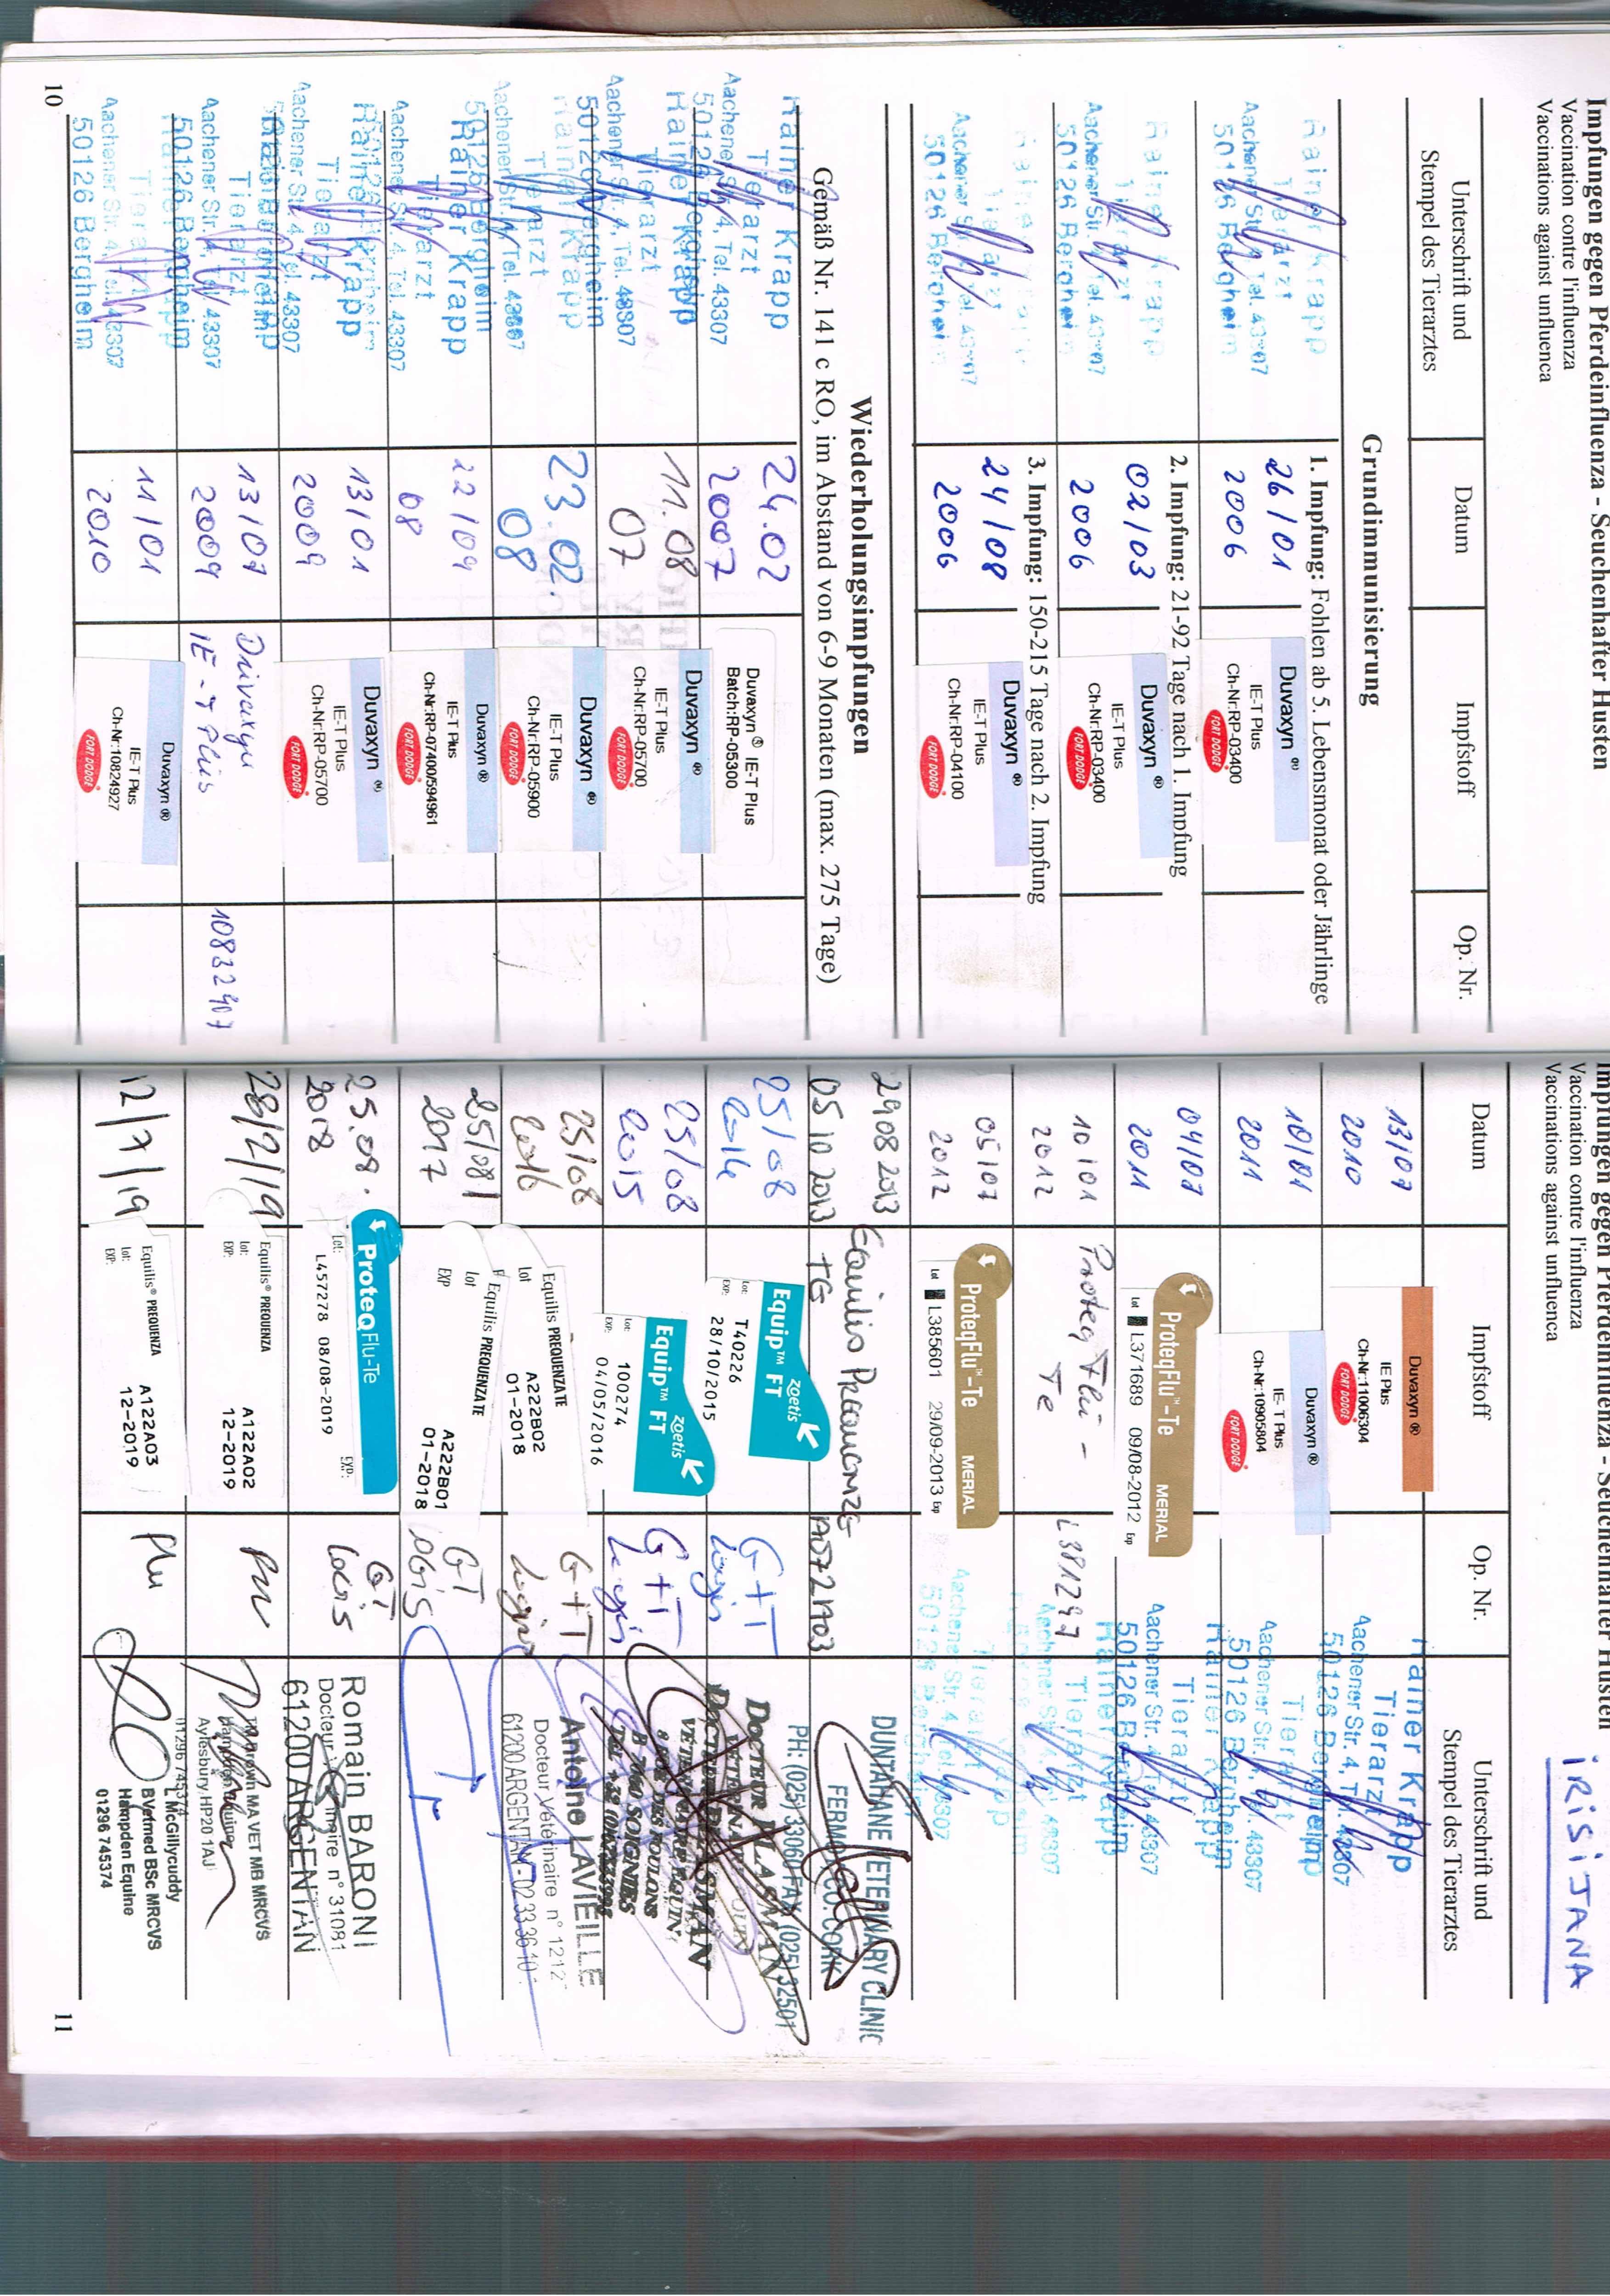 Impfungen gegen Pferdeinfluenza - Seuchenhafter Husten
Vaccination contre l'influenza
Vaccinations against unfluenca
Unterschrift und
Stempel des Tierarztes
Datum
Impfstoff
Op. Nr.
Grundimmunisierung
1. Impfung: Fohlen ab 5. Lebensmonat oder Jährlinge
Tierarzt
Aachener Str. Tel. 43307
50126 Bergheim
26/01
2006
Duvaxyn ®
IE-T Plus
Ch-Nr:RP-03400
FORT DODGE
2. Impfung: 21-92 Tage nach 1. Impfung
Aachener Str. Tel. 43307
50126 Bergheim
02/03
2006
Duvaxyn ®
IE-T Plus
Ch-Nr:RP-03400
FORT DODGE
3. Impfung: 150-215 Tage nach 2. Impfung
50126 Bergheim
24/08
2006
Duvaxyn ®
IE-T Plus
Ch-Nr:RP-04100
FORT DODGE
Wiederholungsimpfungen
Gemäß Nr. 141 c RO, im Abstand von 6-9 Monaten (max. 275 Tage)
Rainer Krapp
Tierarzt
Aachener Str. 4, Tel. 43307
50126 Bergheim
24.02
2007
Duvaxyn® IE-T Plus
Batch:RP-05300
Rainer Krapp
Tierarzt
Aachener Str. 4, Tel. 43307
50126 Bergheim
11.08
07
Duvaxyn ®
IE-T Plus
Ch-Nr:RP-05700
FORT DODGE
Rainer Krapp
Tierarzt
Aachener Str. 4, Tel. 43307
50126 Bergheim
23.02.
08
Duvaxyn ®
IE-T Plus
Ch-Nr:RP-05900
FORT DODGE
Rainer Krapp
Tierarzt
Aachener Str. 4, Tel. 43307
22/09
08
Duvaxyn ®
IE-T Plus
Ch-Nr:RP-07400/594961
FORT DODGE
Rainer Krapp
Tierarzt
Aachener Str. 4, Tel. 43307
13/01
2009
Duvaxyn ®
IE-T Plus
Ch-Nr:RP-05700
FORT DODGE
Tierarzt
Aachener Str. 4, 43307
50126 Bergheim
13/07
2009
Duvaxyn
IE-T Plus
10832907
Tierarzt
Aachener Str. 4, Tel. 43307
50126 Bergheim
11/01
2010
Duvaxyn ®
IE-T Plus
Ch-Nr:10824927
FORT DODGE
10
Impfungen gegen Pferdeinfluenza - Seuchenhafter Husten
Vaccination contre l'influenza
Vaccinations against unfluenca
IRISIJANA
Datum
Impfstoff
Op. Nr.
Unterschrift und
Stempel des Tierarztes
13/07
2010
Duvaxyn ®
IE Plus
Ch-Nr:11006304
FORT DODGE
Rainer Krapp
Tierarzt
Aachener Str. 4, Tel. 43307
50126 Bergheim
10/01
2011
Duvaxyn ®
IE-T Plus
Ch-Nr:10905804
FORT DODGE
Tierarzt
Aachener Str. 43307
50126 Bergheim
04/07
2011
ProteqFlu™-Te
MERIAL
Lot L371689 09/08-2012 Exp
Rainer Krapp
Tierarzt
Aachener Str. 4 43307
50126 Bergheim
10/01
2012
Proteq Flu -
Te
L381297
Rainer Krapp
Tierarzt
Aachener Str. 43307
05/07
2012
ProteqFlu™-Te
MERIAL
Lot L385601 29/09-2013 Exp
Tierarzt
Aachener Str. 4 43307
50126 Bergheim
29 08 2013
Equilis Prequenza
DUNTAHANE VETERINARY CLINIC
FERMOY, CO. CORK
PH: (025) 33060 FAX (025) 32501
05 10 2013
A072A03
25/08
2014
zoetis
Equip™ FT
Lot: T40226
EXP: 28/10/2015
G+T
DOCTEUR PLASMAN
25/08
2015
zoetis
Equip™ FT
Lot: 100274
EXP: 04/05/2016
G+T
VETERINAIRE EQUIN
8 RUE DES FOULONS
B 7060 SOIGNIES
25/08
2016
Equilis PREQUENZA TE
Lot A222B02
01-2018
G+T
Antoine LAVIEILLE
Docteur Vétérinaire n° 1212
61200 ARGENTAN - 02 33 36 10
25/08/
2017
Equilis PREQUENZA TE
Lot A222B01
EXP 01-2018
GT
25.08.
2018
ProteqFlu-Te
Lot: L457278 08/08-2019 EXP:
GT
Romain BARONI
Docteur Vétérinaire n° 31081
61200 ARGENTAN
28/2/19
Equilis® PREQUENZA
Lot: A122A02
EXP: 12-2019
MA VET MB MRCVS
Hampden Equine
Aylesbury, HP20 1AJ
01296 745374
12/7/19
Equilis® PREQUENZA
Lot: A122A03
EXP: 12-2019
L McGillycuddy
BVetmed BSc MRCVS
Hampden Equine
01296 745374
11